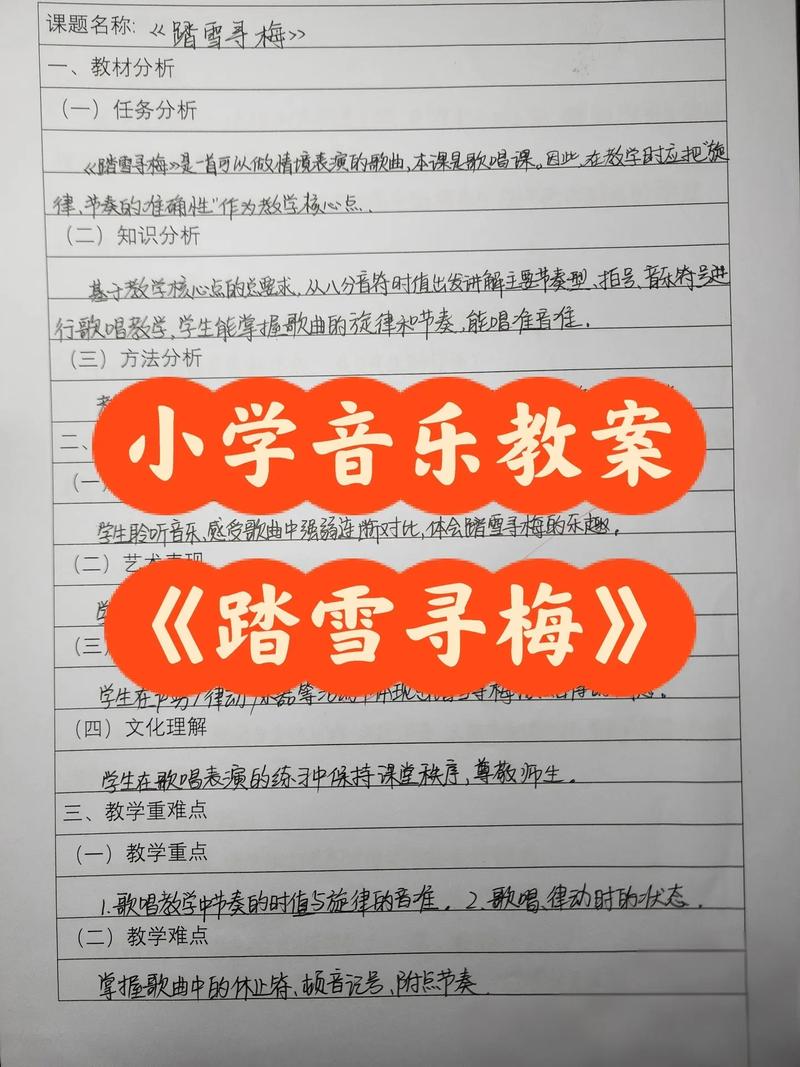 课题名称:《踏雪寻梅》
一、教材分析
(一)任务分析
《踏雪寻梅》是一首可以做情境表演的歌曲,本课是歌唱课。因此,在教学时应把"旋
律、节奏的准确性"作为教学核心点.
(二)知识分析
基于教学核心点的总要求,从八分音符时值出发讲解主要节奏型、拍号、音乐符号进
行歌唱教学,学生能掌握歌曲的旋律和节奏,能唱准音准.
(三)方法分析
小学音乐教案
二、
(一)
学生聆听音乐,感受歌曲中强弱连断对比,体会踏雪寻梅的乐趣.
(二)艺术表现
学
《踏雪寻梅》
(三)
学生在
(四)文化理解
学生在歌唱表演的练习中保持课堂秩序,尊敬师生.
三、教学重难点
(一)教学重点
1.歌唱教学中节奏的时值与旋律的音准. 2.歌唱、律动时的状态.
(二)教学难点
掌握歌曲中的休止符、顿音记号、附点节奏.